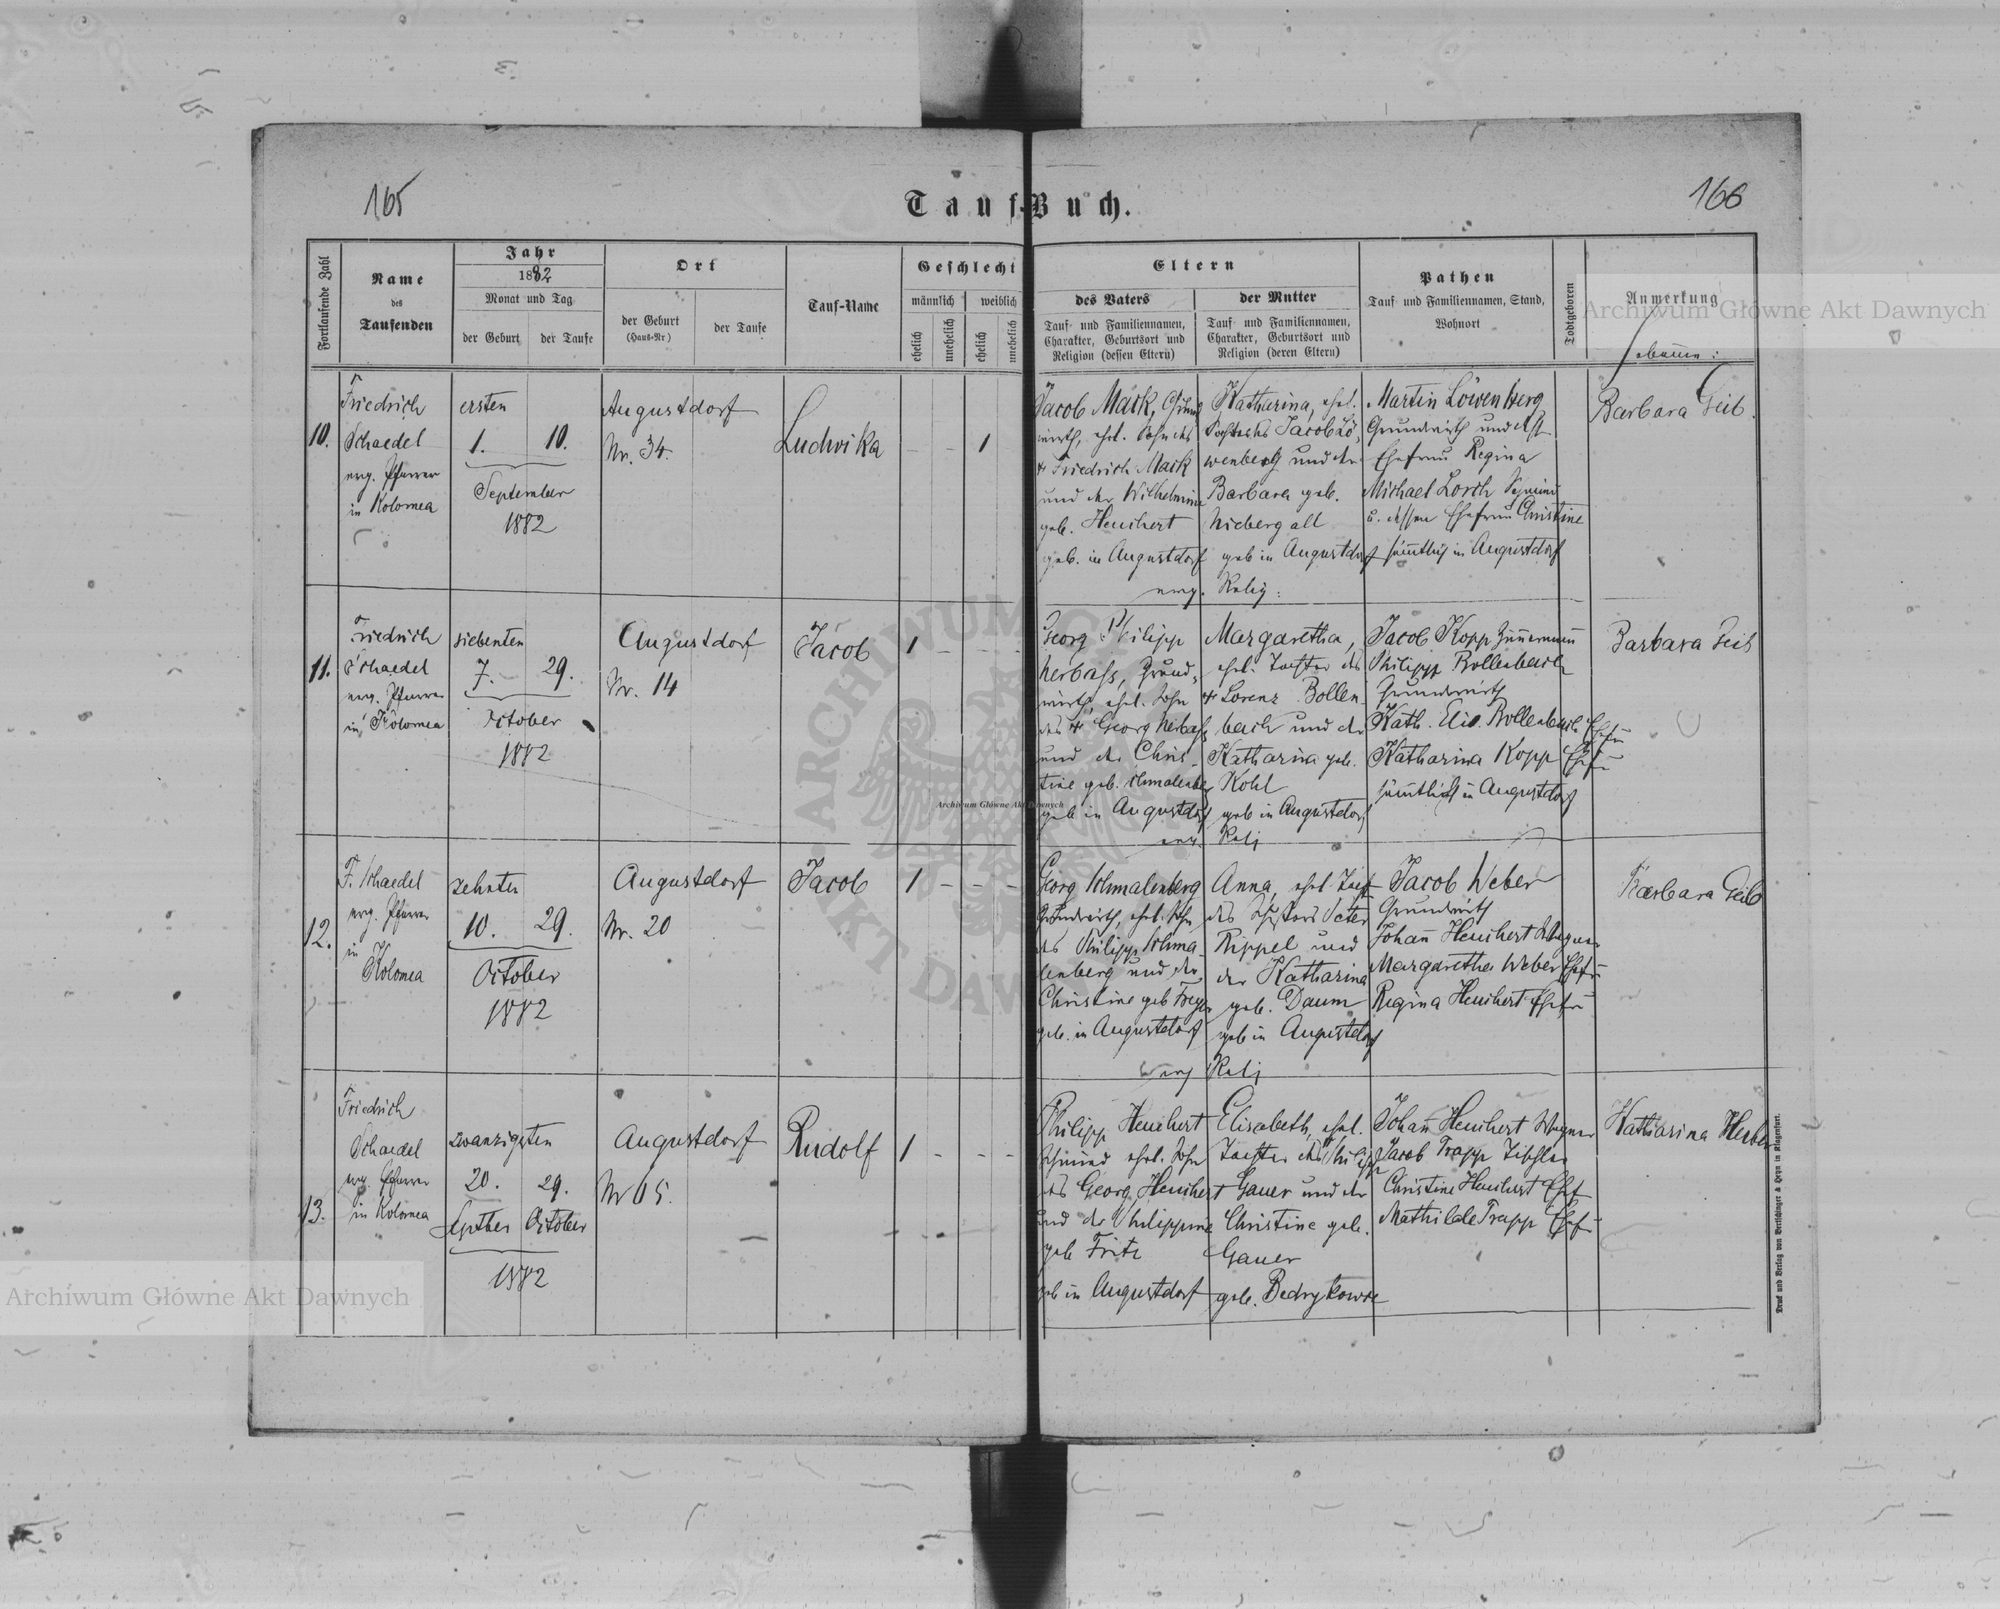 165
166
Tauf-Buch.
Fortlaufende Zahl
Name
des
Taufenden
Jahr
1882
Monat und Tag
der Geburt
der Taufe
Ort
der Geburt
(Haus-Nr)
der Taufe
Tauf-Name
Geschlecht
männlich
weiblich
ehelich
unehelich
ehelich
unehelich
Eltern
des Vaters
Tauf- und Familiennamen,
Charakter, Geburtsort und
Religion (dessen Eltern)
der Mutter
Tauf- und Familiennamen,
Charakter, Geburtsort und
Religion (deren Eltern)
Pathen
Tauf- und Familiennamen, Stand,
Wohnort
Todtgeboren
Anmerkung
10.
Friedrich
Schaedel
evg. Pfarrer
in Kolomea
ersten
1. 10.
September
1882
Augustdorf
Nr. 34.
Ludwika
- - 1
Jacob Mark,
wirth, ehel. Sohn des
+ Friedrich Mark
und der Wilhelmine
geb. Heuchert
geb. in Augustdorf
Katharina, ehel.
Tochter des Jacob Lö-
wenberg und der
Barbara geb.
Niebergall
geb in Augustdorf
evg. Relig:
Martin Löwenberg
Grundwirth und dess
Ehefrau Regina
Michael Lorch
u. dessen Ehefrau Christine
sämtlich in Augustdorf
Barbara Geib.
11.
Friedrich
Schaedel
evg. Pfarrer
in Kolomea
siebenten
7. 29.
October
1882
Augustdorf
Nr. 14
Jacob
1 - - -
Georg Philipp
Nerbass, Grund-
wirth, ehel. Sohn
des + Georg Nerbass
und der Chris-
tine geb. Schmalenberg
geb in Augustdorf
Margaretha,
ehel. Tochter des
+ Lorenz Bollen-
bach und der
Katharina geb.
Kohl
geb in Augustdorf
evg. Relig
Jacob Kopp Zimmermann
Philipp Bollenbach
Grundwirth
Kath. Elis. Bollenbach Ehefr
Katharina Kopp Ehefr
sämtlich in Augustdorf
Barbara Geib
12.
F. Schaedel
evg. Pfarrer
in
Kolomea
zehnten
10. 29.
October
1882
Augustdorf
Nr. 20
Jacob
1 - - -
Georg Schmalenberg
Grundwirth, ehel. Sohn
des Philipp Schma-
lenberg und der
Christine geb
geb. in Augustdorf
Anna, ehel. Tocht
des Peter
Rippel und
der Katharina
geb. Daum
geb in Augustdorf
evg Relig
Jacob Weber
Grundwirth
Johan Heuchert Wagner
Margaretha Weber Ehefr
Regina Heuchert Ehefr
Barbara Geib
13.
Friedrich
Schaedel
evg. Pfarrer
in Kolomea
zwanzigsten
20. 29.
Septber October
1882
Augustdorf
Nr 65.
Rudolf
1 - - -
Philipp Heuchert
Schmied ehel. Sohn
des Georg Heuchert
und der Philippine
geb Fritz
geb in Augustdorf
Elisabeth, ehel.
Tochter des Philipp
Gauer und der
Christine geb.
Gauer
geb.
Johan Heuchert Wagner
Jacob Trapp Tischler
Christine Heuchert Ehef
Mathilde Trapp Ehefr
Katharina Herber
Druck und Verlag von Bertschinger & Heyn in Klagenfurt.
Archiwum Główne Akt Dawnych
Archiwum Główne Akt Dawnych
Archiwum Główne Akt Dawnych